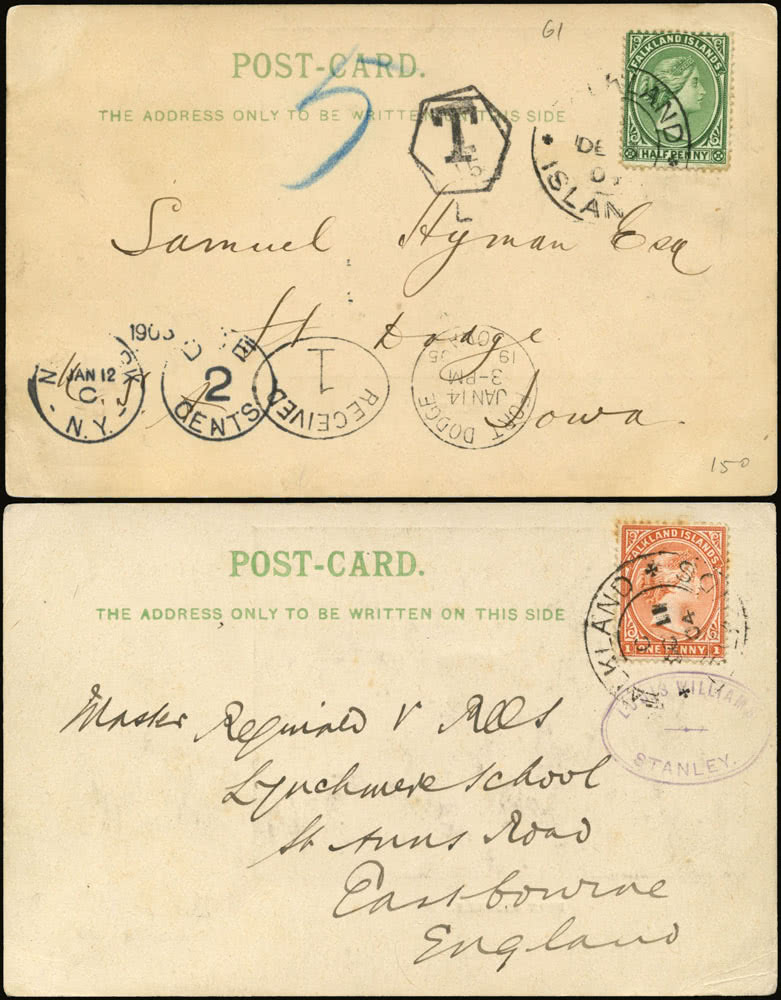 61
POST-CARD.
THE ADDRESS ONLY TO BE WRITTEN ON THIS SIDE
5
T
L
FALKLAND ISLANDS
HALF PENNY
DE
Samuel Hyman Esq
Ft Dodge
Iowa.
JAN 12
C
N.Y.
2
CENTS
RECEIVED
1
FORT DODGE
JAN 14
3-PM
150
POST-CARD.
THE ADDRESS ONLY TO BE WRITTEN ON THIS SIDE
FALKLAND ISLANDS
1 ONE PENNY 1
04
LOUIS WILLIAMS
STANLEY.
Master Reginald V
Lynchmere School
St Anns Road
Eastbourne
England